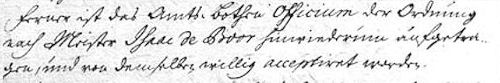 Ferner ist das Amts-Bothen Officium der Ordnung
nach Meister Isaac de Boor hinwiederum aufgetra-
gen, und von demselben willig acceptiret worden.